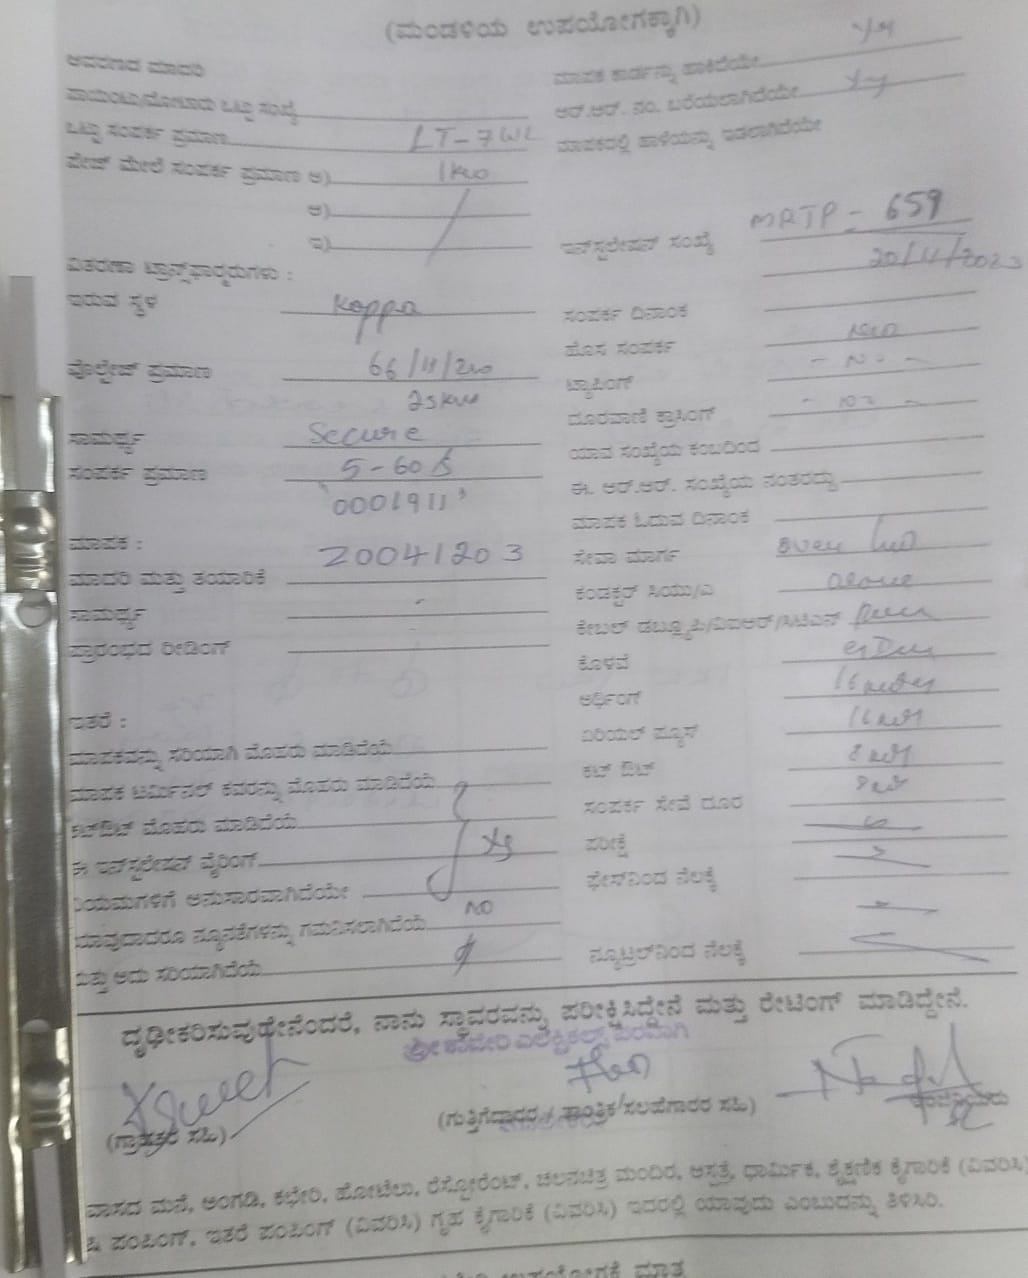 (ಮಂಡಳಿಯ ಉಪಯೋಗಕ್ಕಾಗಿ)
ಆವರಣದ ಮಾದರಿ
ಮಾಪಕ ಕಾರ್ಡನ್ನು ಹಾಕಿದೆಯೇ
ಪಾಯಿಂಟು/ಮೋಟಾರು ಒಟ್ಟು ಸಂಖ್ಯೆ
ಆರ್.ಆರ್. ನಂ. ಬರೆಯಲಾಗಿದೆಯೇ
ಒಟ್ಟು ಸಂಪರ್ಕ ಪ್ರಮಾಣ LT-7
ಮಾಪಕದಲ್ಲಿ ಹಾಳೆಯನ್ನು ಇಡಲಾಗಿದೆಯೇ
ಪೇಜ್ ಮೇಲೆ ಸಂಪರ್ಕ ಪ್ರಮಾಣ ಅ) 1kw
ಆ)
ಇ)
ಇನ್‌ಸ್ಟಲೇಷನ್ ಸಂಖ್ಯೆ MRTP - 659
20/11/2023
ವಿತರಣಾ ಟ್ರಾನ್ಸ್‌ಫಾರ್ಮರುಗಳು :
ಇರುವ ಸ್ಥಳ Koppa
ಸಂಪರ್ಕ ದಿನಾಂಕ
ಹೊಸ ಸಂಪರ್ಕ
ವೋಲ್ಟೇಜ್ ಪ್ರಮಾಣ 66/11/
ಟ್ಯಾಪಿಂಗ್
ದೂರವಾಣಿ ಕ್ರಾಸಿಂಗ್
ಸಾಮರ್ಥ್ಯ Secure
ಯಾವ ಸಂಖ್ಯೆಯ ಕಂಬದಿಂದ
ಸಂಪರ್ಕ ಪ್ರಮಾಣ 5-60A
ಈ. ಆರ್.ಆರ್. ಸಂಖ್ಯೆಯ ನಂತರದ್ದು
'0001911'
ಮಾಪಕ ಓದುವ ದಿನಾಂಕ
ಮಾಪಕ : 20041203
ಸೇವಾ ಮಾರ್ಗ
ಮಾದರಿ ಮತ್ತು ತಯಾರಿಕೆ
ಕಂಡಕ್ಟರ್ ಸಿಯು/ಎ
ಸಾಮರ್ಥ್ಯ
ಕೇಬಲ್ ಡಬ್ಲ್ಯೂಪಿ/ವಿಐಆರ್/ಸಿಟಿಎಸ್
ಪ್ರಾರಂಭದ ರೀಡಿಂಗ್
ಕೊಳವೆ
ಅರ್ಥಿಂಗ್
ಇತರೆ :
ಏರಿಯಲ್ ಫ್ಯೂಸ್
ಮಾಪಕವನ್ನು ಸರಿಯಾಗಿ ಮೊಹರು ಮಾಡಿದೆಯೆ
ಕಟ್ ಔಟ್
ಮಾಪಕ ಟರ್ಮಿನಲ್ ಕವರನ್ನು ಮೊಹರು ಮಾಡಿದೆಯೆ
ಸಂಪರ್ಕ ಸೇವೆ ದೂರ
ಕಟ್‌ಔಟ್ ಮೊಹರು ಮಾಡಿದೆಯೆ
ಪರೀಕ್ಷೆ
ಈ ಇನ್‌ಸ್ಟಲೇಷನ್ ವೈರಿಂಗ್
ಫೇಸ್‌ನಿಂದ ನೆಲಕ್ಕೆ
ನಿಯಮಗಳಿಗೆ ಅನುಸಾರವಾಗಿದೆಯೇ
ಯಾವುದಾದರೂ ನ್ಯೂನತೆಗಳನ್ನು ಗಮನಿಸಲಾಗಿದೆಯೆ NO
ಮತ್ತು ಅದು ಸರಿಯಾಗಿದೆಯೆ
ನ್ಯೂಟ್ರಲ್‌ನಿಂದ ನೆಲಕ್ಕೆ
ದೃಢೀಕರಿಸುವುದೇನೆಂದರೆ, ನಾನು ಸ್ಥಾವರವನ್ನು ಪರೀಕ್ಷಿಸಿದ್ದೇನೆ ಮತ್ತು ರೇಟಿಂಗ್ ಮಾಡಿದ್ದೇನೆ.
ಶ್ರೀ ಕಾವೇರಿ ಎಲೆಕ್ಟ್ರಿಕಲ್ಸ್ ಪರವಾಗಿ
(ಗ್ರಾಹಕರ ಸಹಿ)
(ಗುತ್ತಿಗೆದಾರರ / ತಾಂತ್ರಿಕ ಸಲಹೆಗಾರರ ಸಹಿ)
ವಾಸದ ಮನೆ, ಅಂಗಡಿ, ಕಛೇರಿ, ಹೋಟೆಲು, ರೆಸ್ಟೋರೆಂಟ್, ಚಲನಚಿತ್ರ ಮಂದಿರ, ಆಸ್ಪತ್ರೆ, ಧಾರ್ಮಿಕ, ಶೈಕ್ಷಣಿಕ ಕೈಗಾರಿಕೆ (ವಿವರಿಸಿ)
ಪಂಪಿಂಗ್, ಇತರೆ ಪಂಪಿಂಗ್ (ವಿವರಿಸಿ) ಗೃಹ ಕೈಗಾರಿಕೆ (ವಿವರಿಸಿ) ಇದರಲ್ಲಿ ಯಾವುದು ಎಂಬುದನ್ನು ತಿಳಿಸಿರಿ.
ಉಪಯೋಗಕ್ಕೆ ಮಾತ್ರ